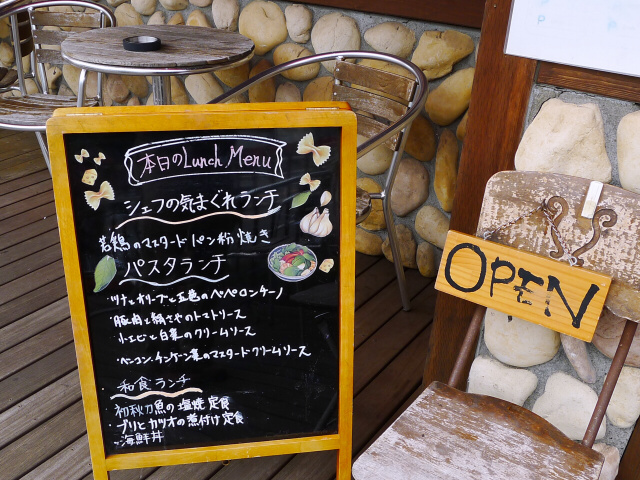 本日のLunch Menu
シェフの気まぐれランチ
若鶏のマスタードパン粉焼き
パスタランチ
・ツナとオリーブと五色のペペロンチーノ
・豚肉と絹さやのトマトソース
・小エビと白菜のクリームソース
・ベーコン・チンゲン菜のマスタードクリームソース
和食ランチ
・初秋刀魚の塩焼定食
・ブリとカツオの煮付け定食
・海鮮丼
OPEN